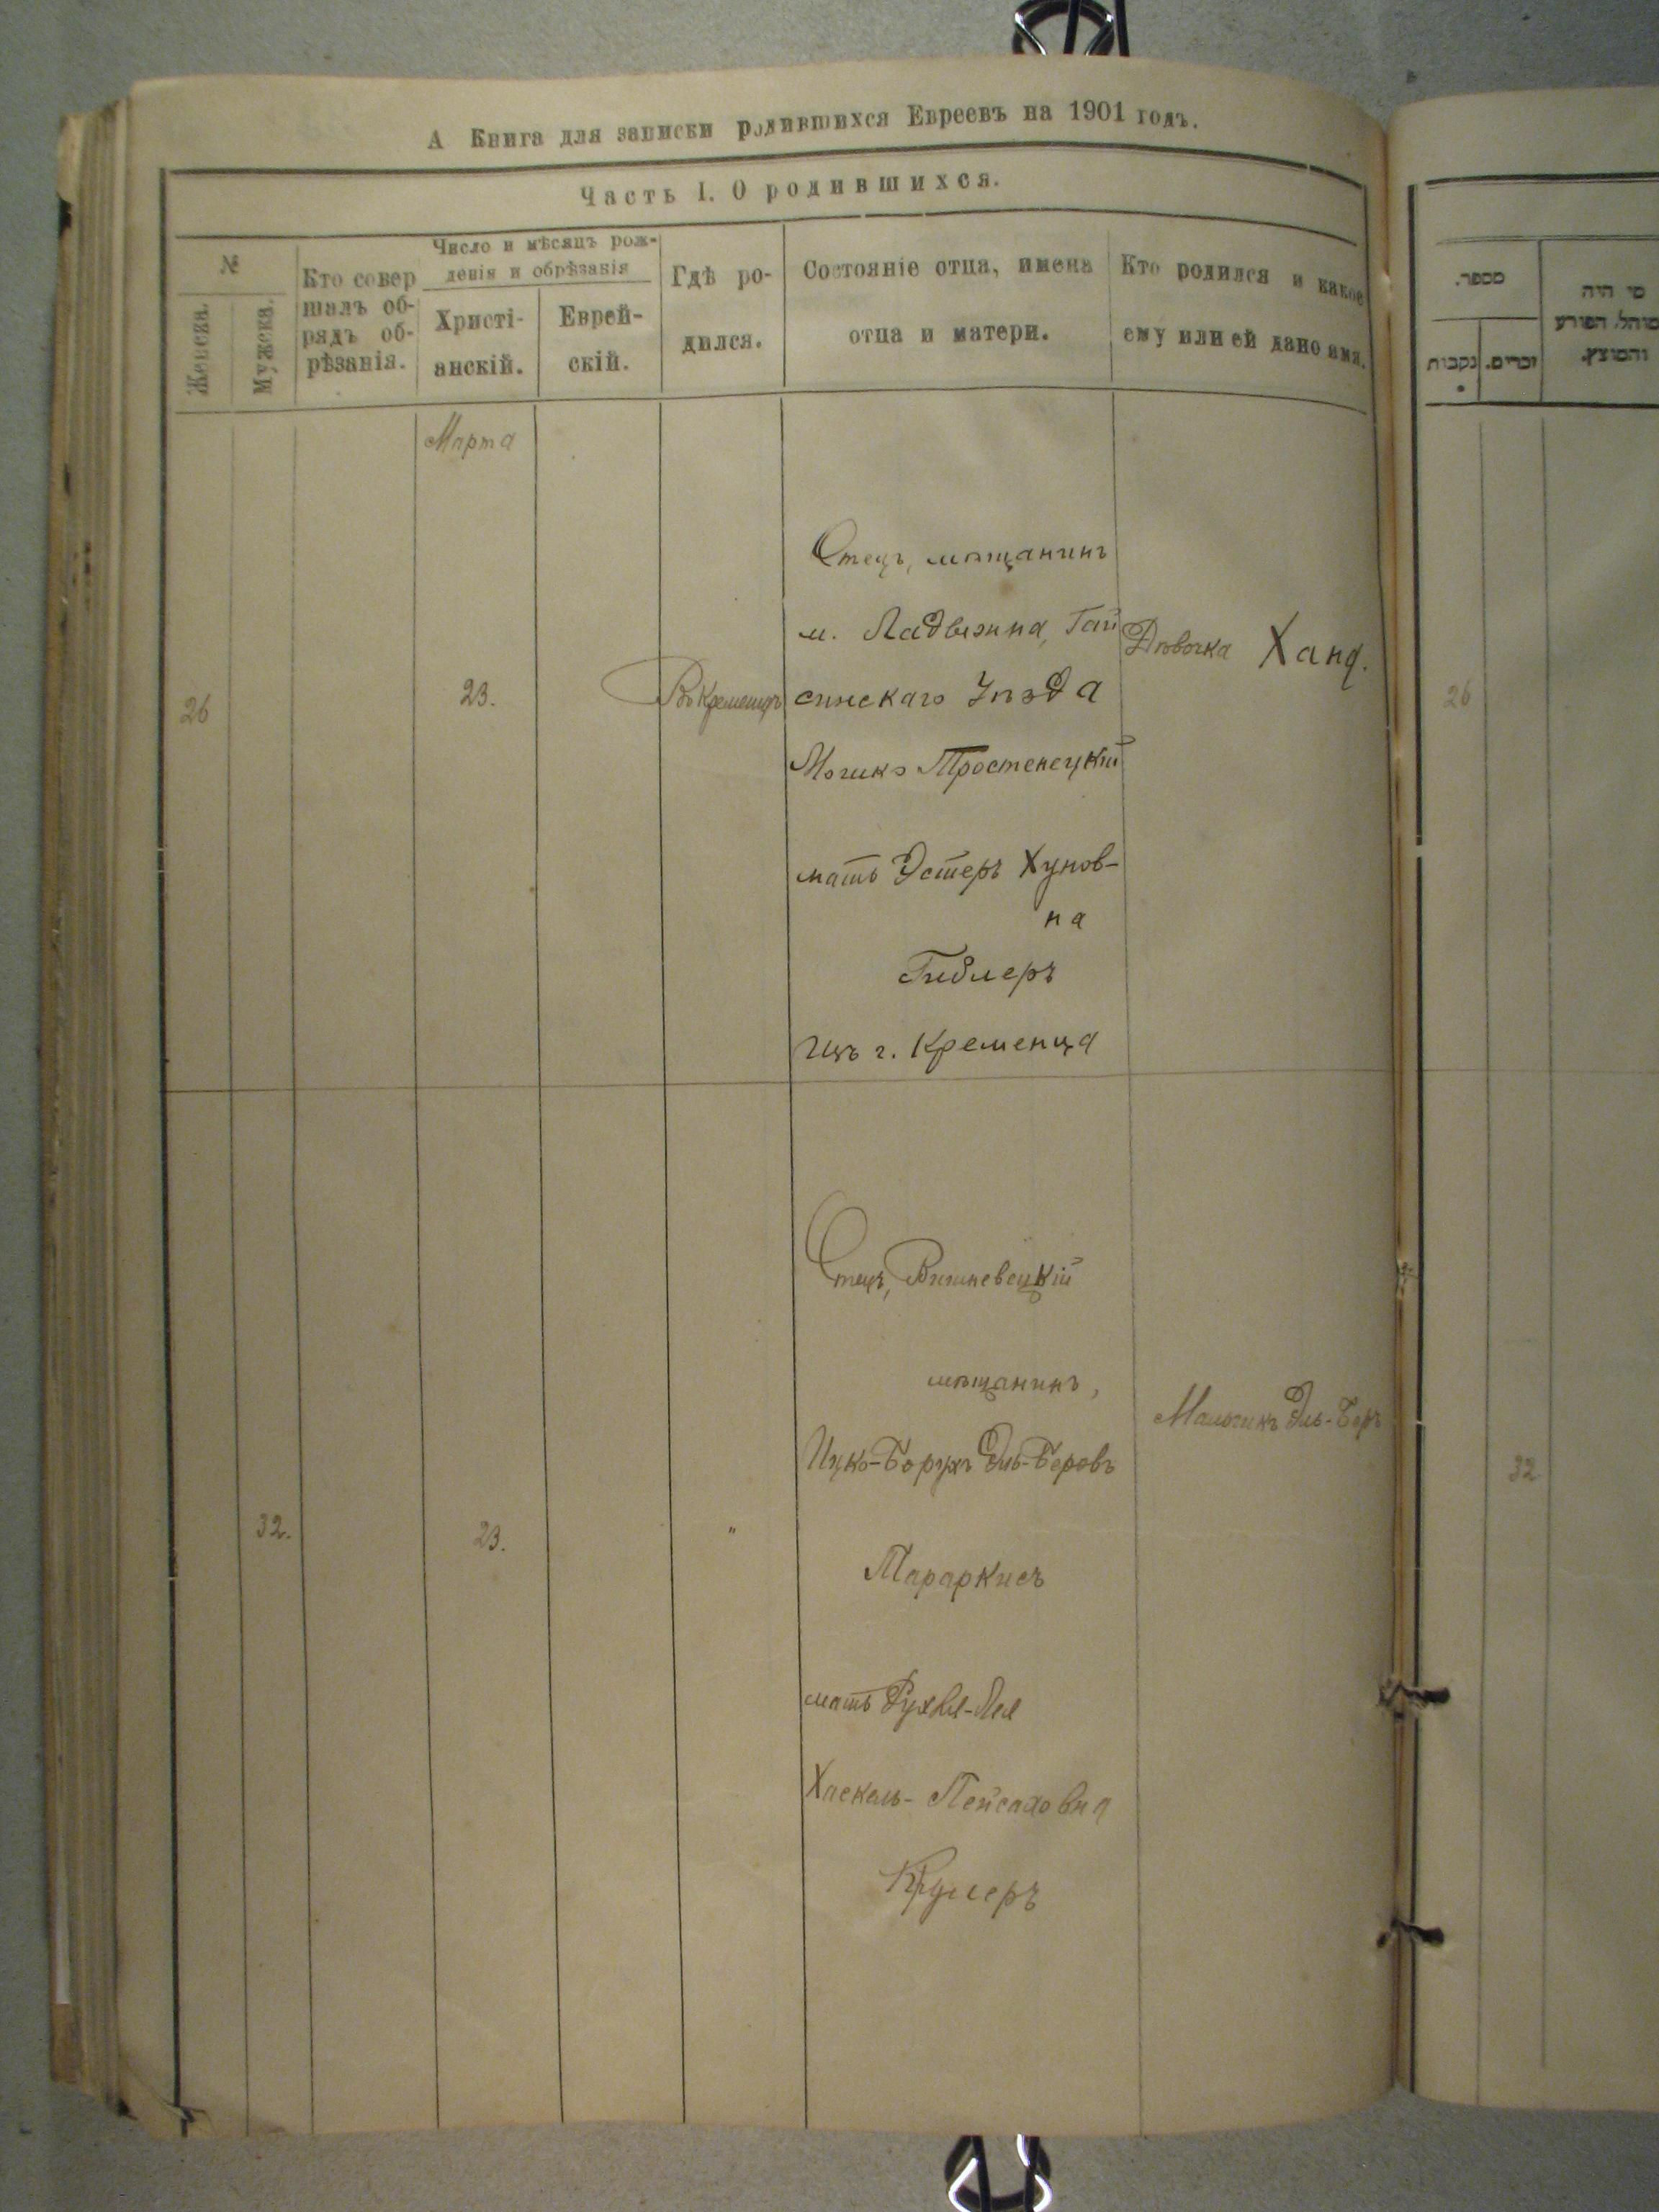 А Книга для записки родившихся Евреевъ на 1901 годъ.
Часть I. О родившихся.
№
Женска.
Мужска.
Кто совер
шалъ об-
рядъ об-
рѣзанія.
Число и мѣсяцъ рож-
денія и обрѣзанія
Христі-
анскій.
Еврей-
скій.
Гдѣ ро-
дился.
Состояніе отца, имена
отца и матери.
Кто родился и какое
ему или ей дано имя.
Марта
26
23.
Въ Кременцѣ
Отецъ, мѣщанинъ
м. Ладыжина, Гай
синскаго Уѣзда
Мошко Тростенецкій
мать Эстеръ Хунов-
на
Гиблеръ
изъ г. Кременца
Дѣвочка Хана.
32.
23.
"
Отецъ, Вишневецкій
мѣщанинъ,
Ицко-Борухъ Эль-Беровъ
Мараркисъ
мать Рухля-Лея
Хаскель-Пейсаховна
Мальчикъ Эль-Беръ
מספר.
נקבות
זכרים.
מי היה
מוהל. הפורע
והמוצץ.
26
32